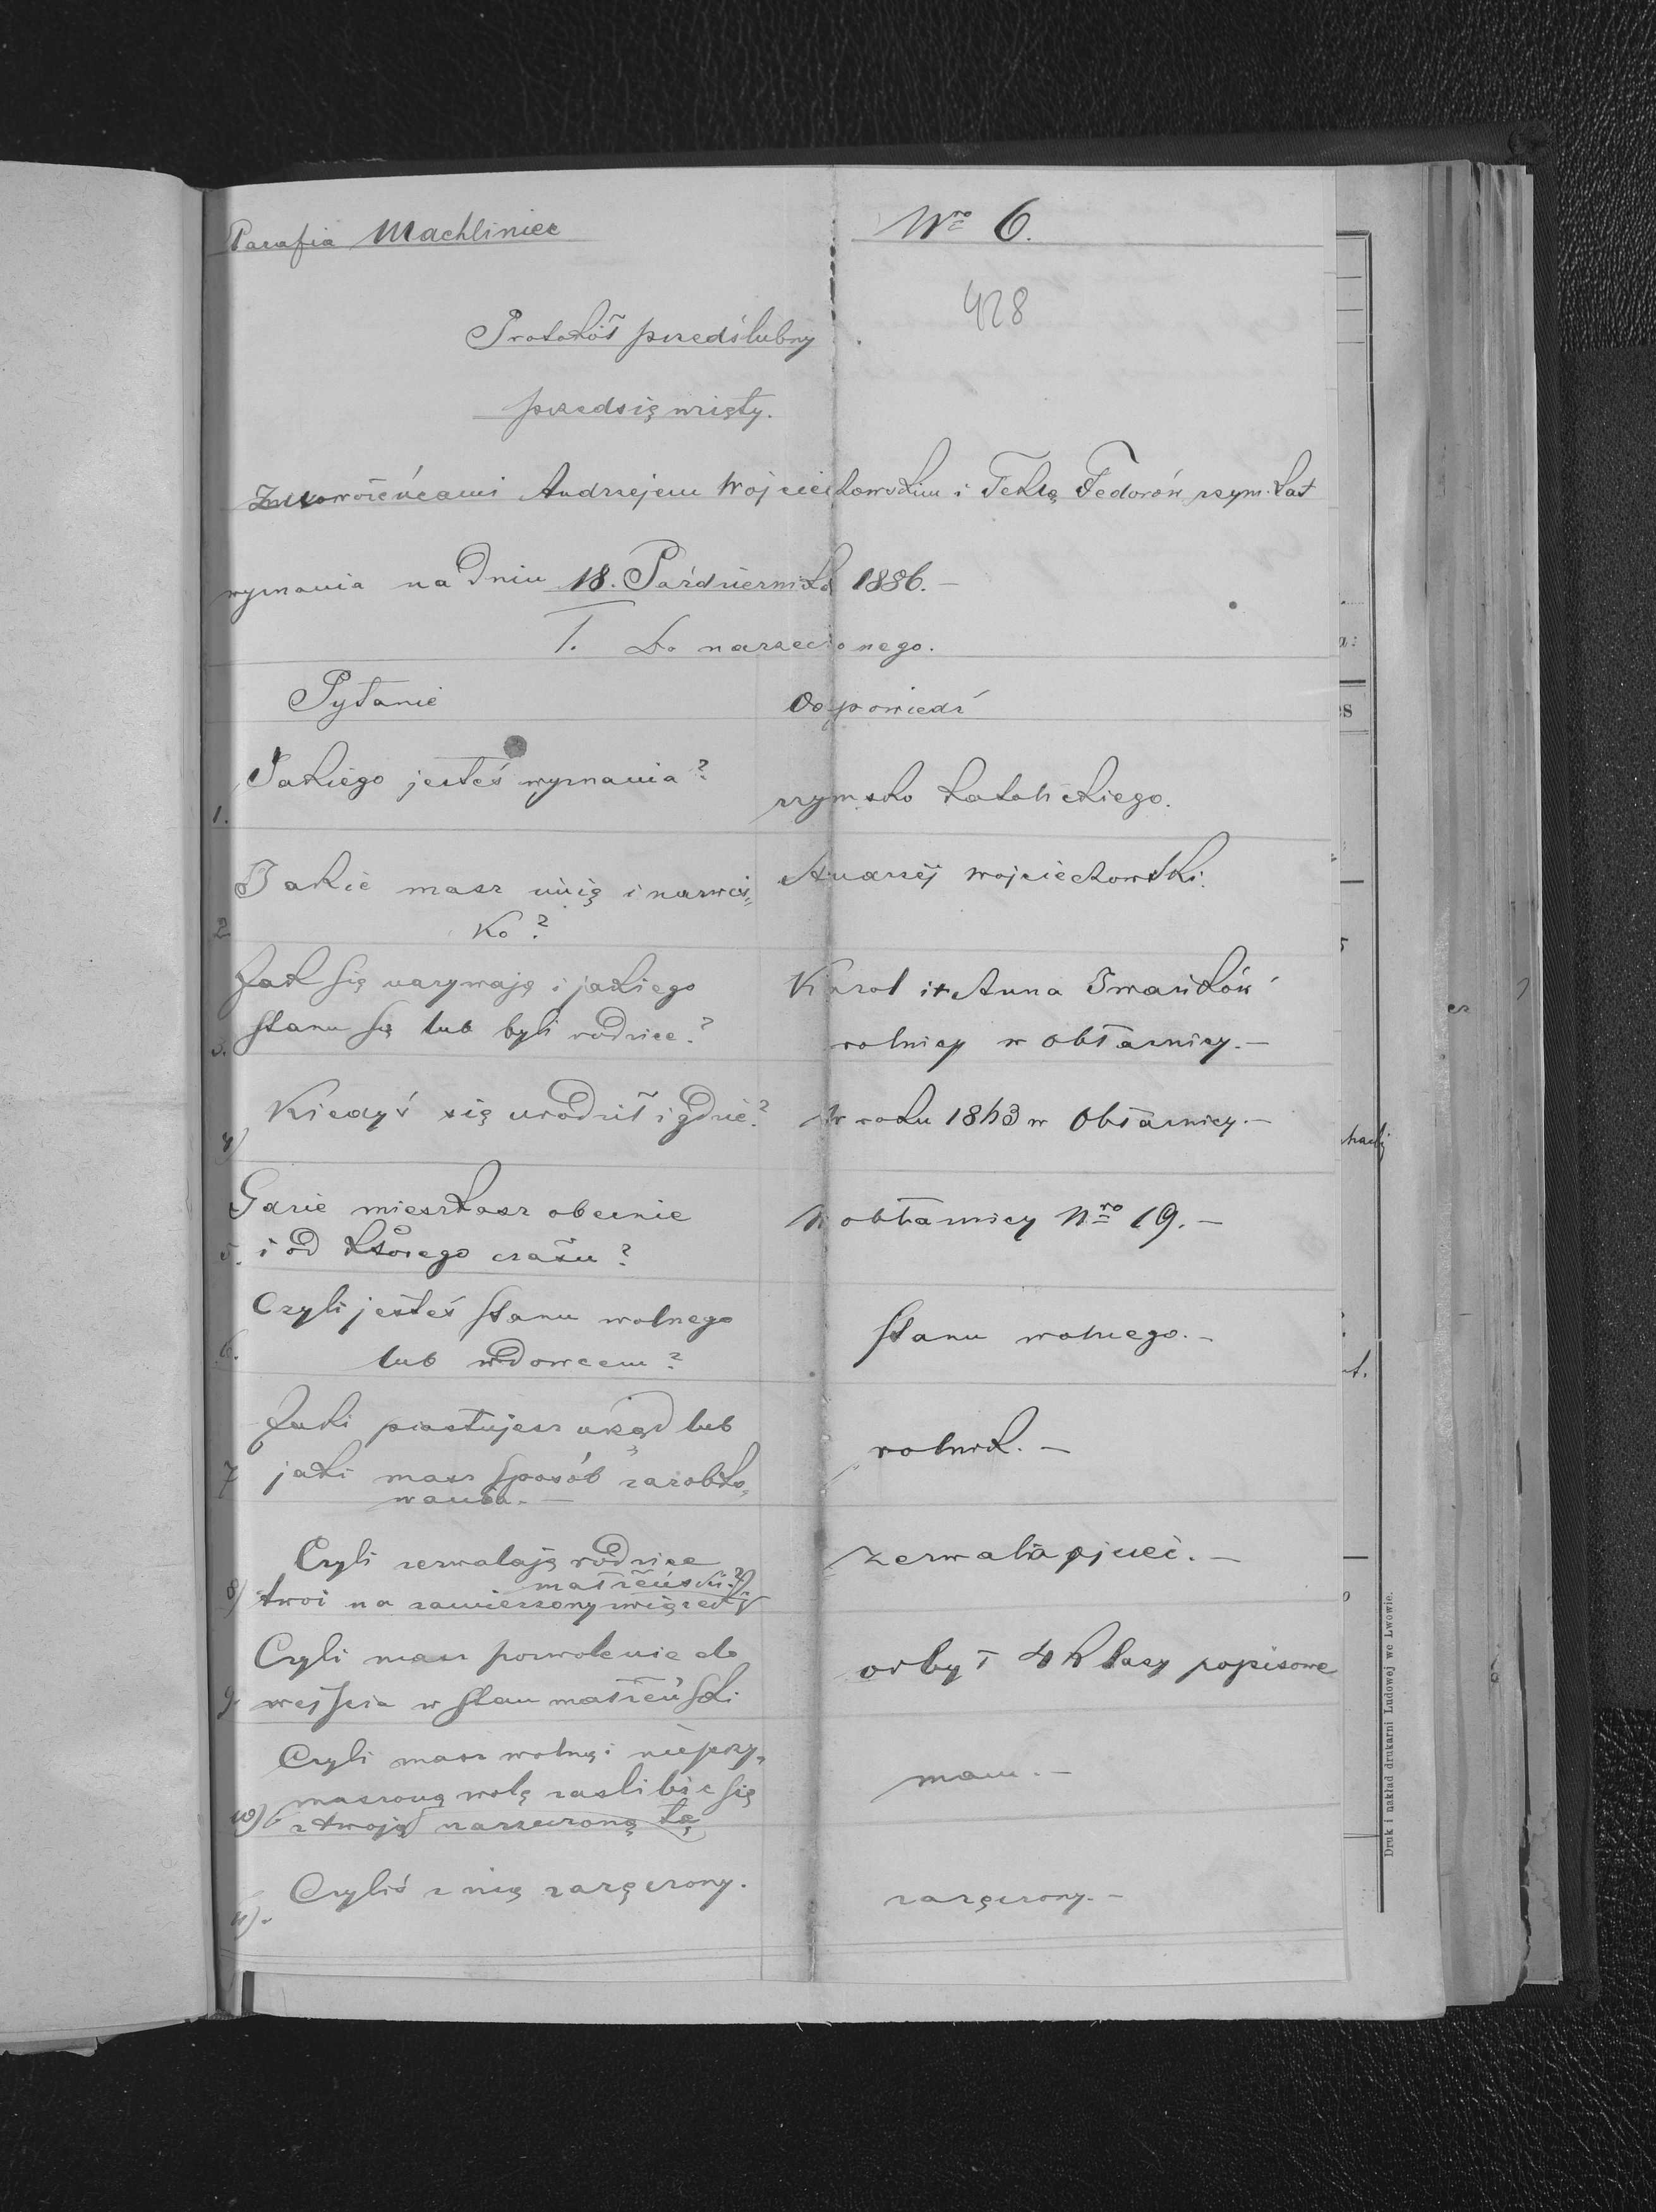 Parafia Machliniec
Nro 6.
428
Protokół przedślubny
przedsięwzięty.
z nowożeńcami Andrzejem Wojciechowskim i Teklą Fedorów rzym. kat
wyznania na dniu 18. Października 1886.-
I. Do narzeczonego.
Pytanie
Odpowiedź
1. Jakiego jesteś wyznania?
rzymsko katolickiego.
2 Jakie masz imię i nazwis„
ko?
Andrzej Wojciechowski.
Jak się nazywają i jakiego
3. stanu są lub byli rodzice?
Karol i Anna Iwasików
rolnicy w Obłaznicy.-
4) Kiedyś się urodził i gdzie?
W roku 1863 w Obłaznicy.-
Gdzie mieszkasz obecnie
5. i od którego czasu?
w obłaznicy Nro 19.-
Czyli jesteś stanu wolnego
6. lub wdowcem?
stanu wolnego.-
Jaki piastujesz urząd lub
7 jaki masz sposób zarobko„
wania.-
rolnik.-
Czyli zezwalają rodzice
małżeński?
8) twoi na zamierzony związek
zezwalają.-
Czyli masz pozwolenie do
9. wejścia w stan małżeński
odbył 4 klasy popisowe
Czyli masz wolną i nieprzy„
muszoną wolę zaślibić się
10) z twoją narzeczoną tą
mam.-
11). Czyliś z nią zaręczony.
zaręczony.-
Druk i nakład drukarni Ludowej we Lwowie.